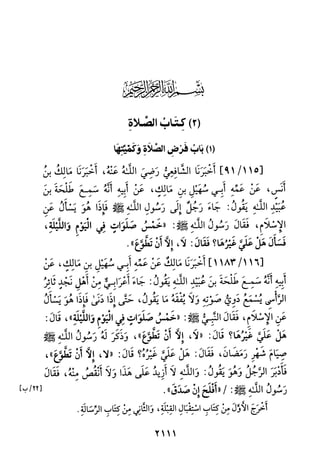 بسم الله الرحمن الرحيم
(٢) كِتَابُ الصَّلاةِ
(١) بَابُ فَرْضِ الصَّلاةِ وَكَمِّيَّتِهَا
[٩١/١١٥] أَخْبَرَنَا الشَّافِعِيُّ رَضِيَ اللَّـهُ عَنْهُ، أَخْبَرَنَا مَالِكُ بنُ
أَنَسٍ، عَنْ عَمِّهِ أَبِي سُهَيْلِ بنِ مَالِكٍ، عَنْ أَبِيهِ أَنَّهُ سَمِـعَ طَلْحَةَ بنَ
عُبَيْدِ اللَّـهِ يَقُولُ: جَاءَ رَجُلٌ إِلَى رَسُولِ اللَّـهِ ﷺ فَإِذَا هُوَ يَسْأَلُ عَنِ
الإِسْلَامِ، فَقَالَ رَسُولُ اللَّـهِ ﷺ: «خَمْسُ صَلَوَاتٍ فِي الْيَوْمِ وَاللَّيْلَةِ،
فَسَأَلَ هَلْ عَلَيَّ غَيْرُهَا؟ فَقَالَ: لَا، إِلَّا أَنْ تَطَّوَّعَ».
[١١٨٣/١١٦] أَخْبَرَنَا مَالِكٌ عَنْ عَمِّهِ أَبِي سُهَيْلِ بنِ مَالِكٍ، عَنْ
أَبِيهِ أَنَّهُ سَمِعَ طَلْحَةَ بنَ عُبَيْدِ اللَّـهِ يَقُولُ: جَاءَ أَعْرَابِـيٌّ مِنْ أَهْلِ نَجْدٍ ثَائِرُ
الرَّأسِ يُسْمَعُ دَوِيُّ صَوْتِهِ وَلَا يُفْقَهُ مَا يَقُولُ، حَتَّى إِذَا دَنَى فَإِذَا هُوَ يَسْأَلُ
عَنِ الإِسْلَامِ، فَقَالَ النَّبِـيُّ ﷺ: «خَمْسُ صَلَوَاتٍ فِي الْيَوْمِ وَاللَّيْلَةِ»، قَالَ:
هَلْ عَلَيَّ غَيْرُهَا؟ قَالَ: «لَا، إِلَّا أَنْ تَطَّوَّعَ»، وَذَكَرَ لَهُ رَسُولُ اللَّـهِ ﷺ
صِيَامَ شَهْرِ رَمَضَانَ، فَقَالَ: هَلْ عَلَيَّ غَيْرُهُ؟ قَالَ: «لَا، إِلَّا أَنْ تَطَّوَّعَ»،
فَأَدْبَرَ الرَّجُلُ وَهُوَ يَقُولُ: وَاللَّـهِ لَا أَزِيدُ عَلَى هَذَا وَلَا أَنْقُصُ مِنْهُ، فَقَالَ
رَسُولُ اللَّـهِ ﷺ: / «أَفْلَحَ إِنْ صَدَقَ». [٢٢/ب]
أَخْرَجَ الأَوَّلَ مِنْ كِتَابِ اسْتِقْبَالِ القِبْلَةِ، وَالثَّانِي مِنْ كِتَابِ الرِّسَالَةِ.
٢١١١